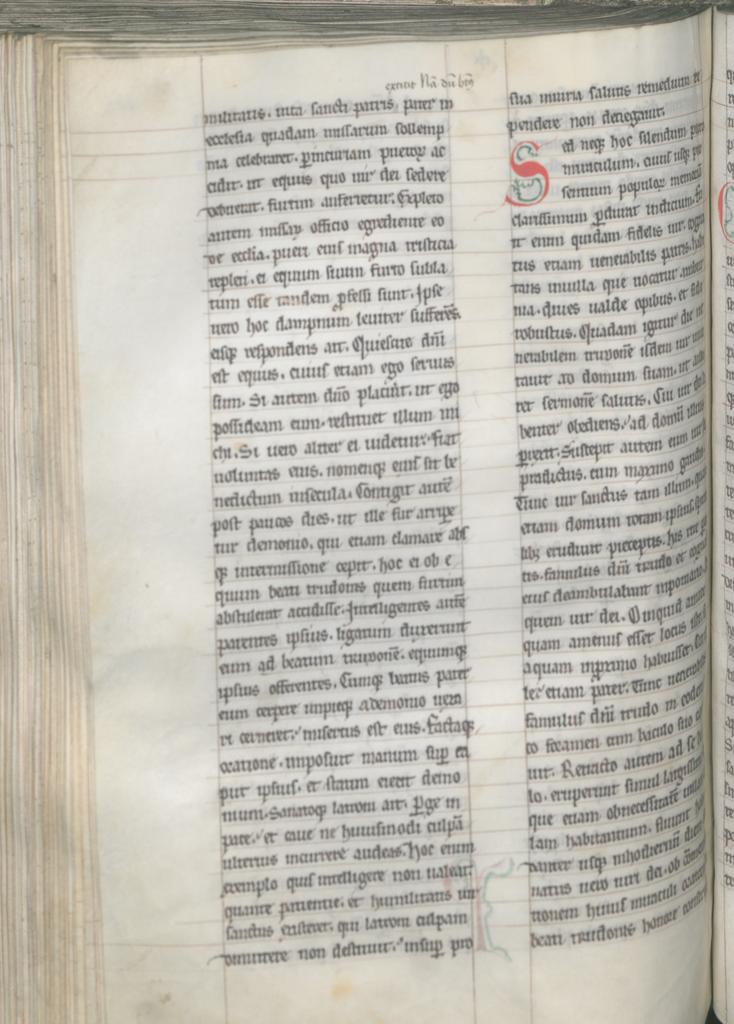 extitit Nā dū btū
militatis. iuxta sancti patris. pater in
ecclesia quadam missarum sollemp
nia celebraret. p incuriam pueroꝝ ac
cidit. ut equus quo uir dei sedere
debuerat. furtim auferretur. Expleto
autem missaꝝ officio egrediente eo
de ecclia. pueri eius magna tristicia
repleti. et equum suum furto subla
tum esse tandem ꝓfessi sunt. Ipse
uero hoc dampnum leuiter sufferēs.
eisqꝫ respondens ait. Quiescite dn̄i
est equus. cuius etiam ego seruus
sum. Si autem dn̄o placuīt. ut ego
possideam eum. restituet illum mi
chi. Si uero aliter ei uidetur. fiat
uoluntas eius. nomenqꝫ eius sit be
nedictum in secula. Contigit autē
post paucos dies. ut ille fur arripe
tur demonio. qui etiam clamare abs
qꝫ intermissione cepit. hoc ei ob e
quum beati trudonis quem furtim
abstulerat accidisse. Intelligentes autē
parentes ipsius. ligatum duxerunt
eum ad beatum trudonē. equumqꝫ
ipsius offerentes. Cumqꝫ beatus pater
eum cerpere impieqꝫ a demonio uexa
ri cerneret. misertus est eius. factaqꝫ
oratione. imposuit manum sup ca
put ipsius. et statim eiecit demo
nium. Sanatoqꝫ latroni ait. Perge in
pace. et caue ne huiusmodi culpā
ulterius incurrere audeas. Hoc enim
exemplo quis intelligere non ualeat.
quante patientie. et humilitatis uir
sanctus existeret. qui latroni culpam
dimittere non destitit. insup pro
sua iniuria salutis remedium re
pendere non denegauit.
Sed neqꝫ hoc silendum puto
miraculum. cuius usqꝫ pre
sentium populoꝝ memoria
clarissimum perdurat indicium. Fu
it enim quidam fidelis uir. cogna
tus etiam uenerabilis patris. habi
tans in uilla que nocatur
nia. diues ualde opibus. et fide
robustus. Quadam igitur die ue
nerabilem trudonē isdem uir inui
tauit ad domum suam. ut audi
ret sermonē salutis. Cui uir dei li
benter obediens. ad domū illius
perrexit. Suscepit autem eum uir
predictus. cum maximo gaudio.
Tunc uir sanctus tam illum. quam
etiam domum totam ipsius.
libꝫ erudiuit preceptis. his ita
tis. famulus dn̄i trudo et cognatus
eius deambulabant in pomario.
quem uir dei. O inquid
quam amenus esset locus iste. si
aquam in proximo habuisset.
etiam pater. Tunc uenerabilis
famulus dn̄i trudo in eodem lo
co foramen cum baculo suo
uit. Retracto autem ad se
lo. eruperunt simul largissime
que etiam ob necessitatē
lam habitantium. fluunt
danter usqꝫ in hodiernū diem.
natus uero uiri dei. ob
tionem huius miraculi
beati trudonis honore